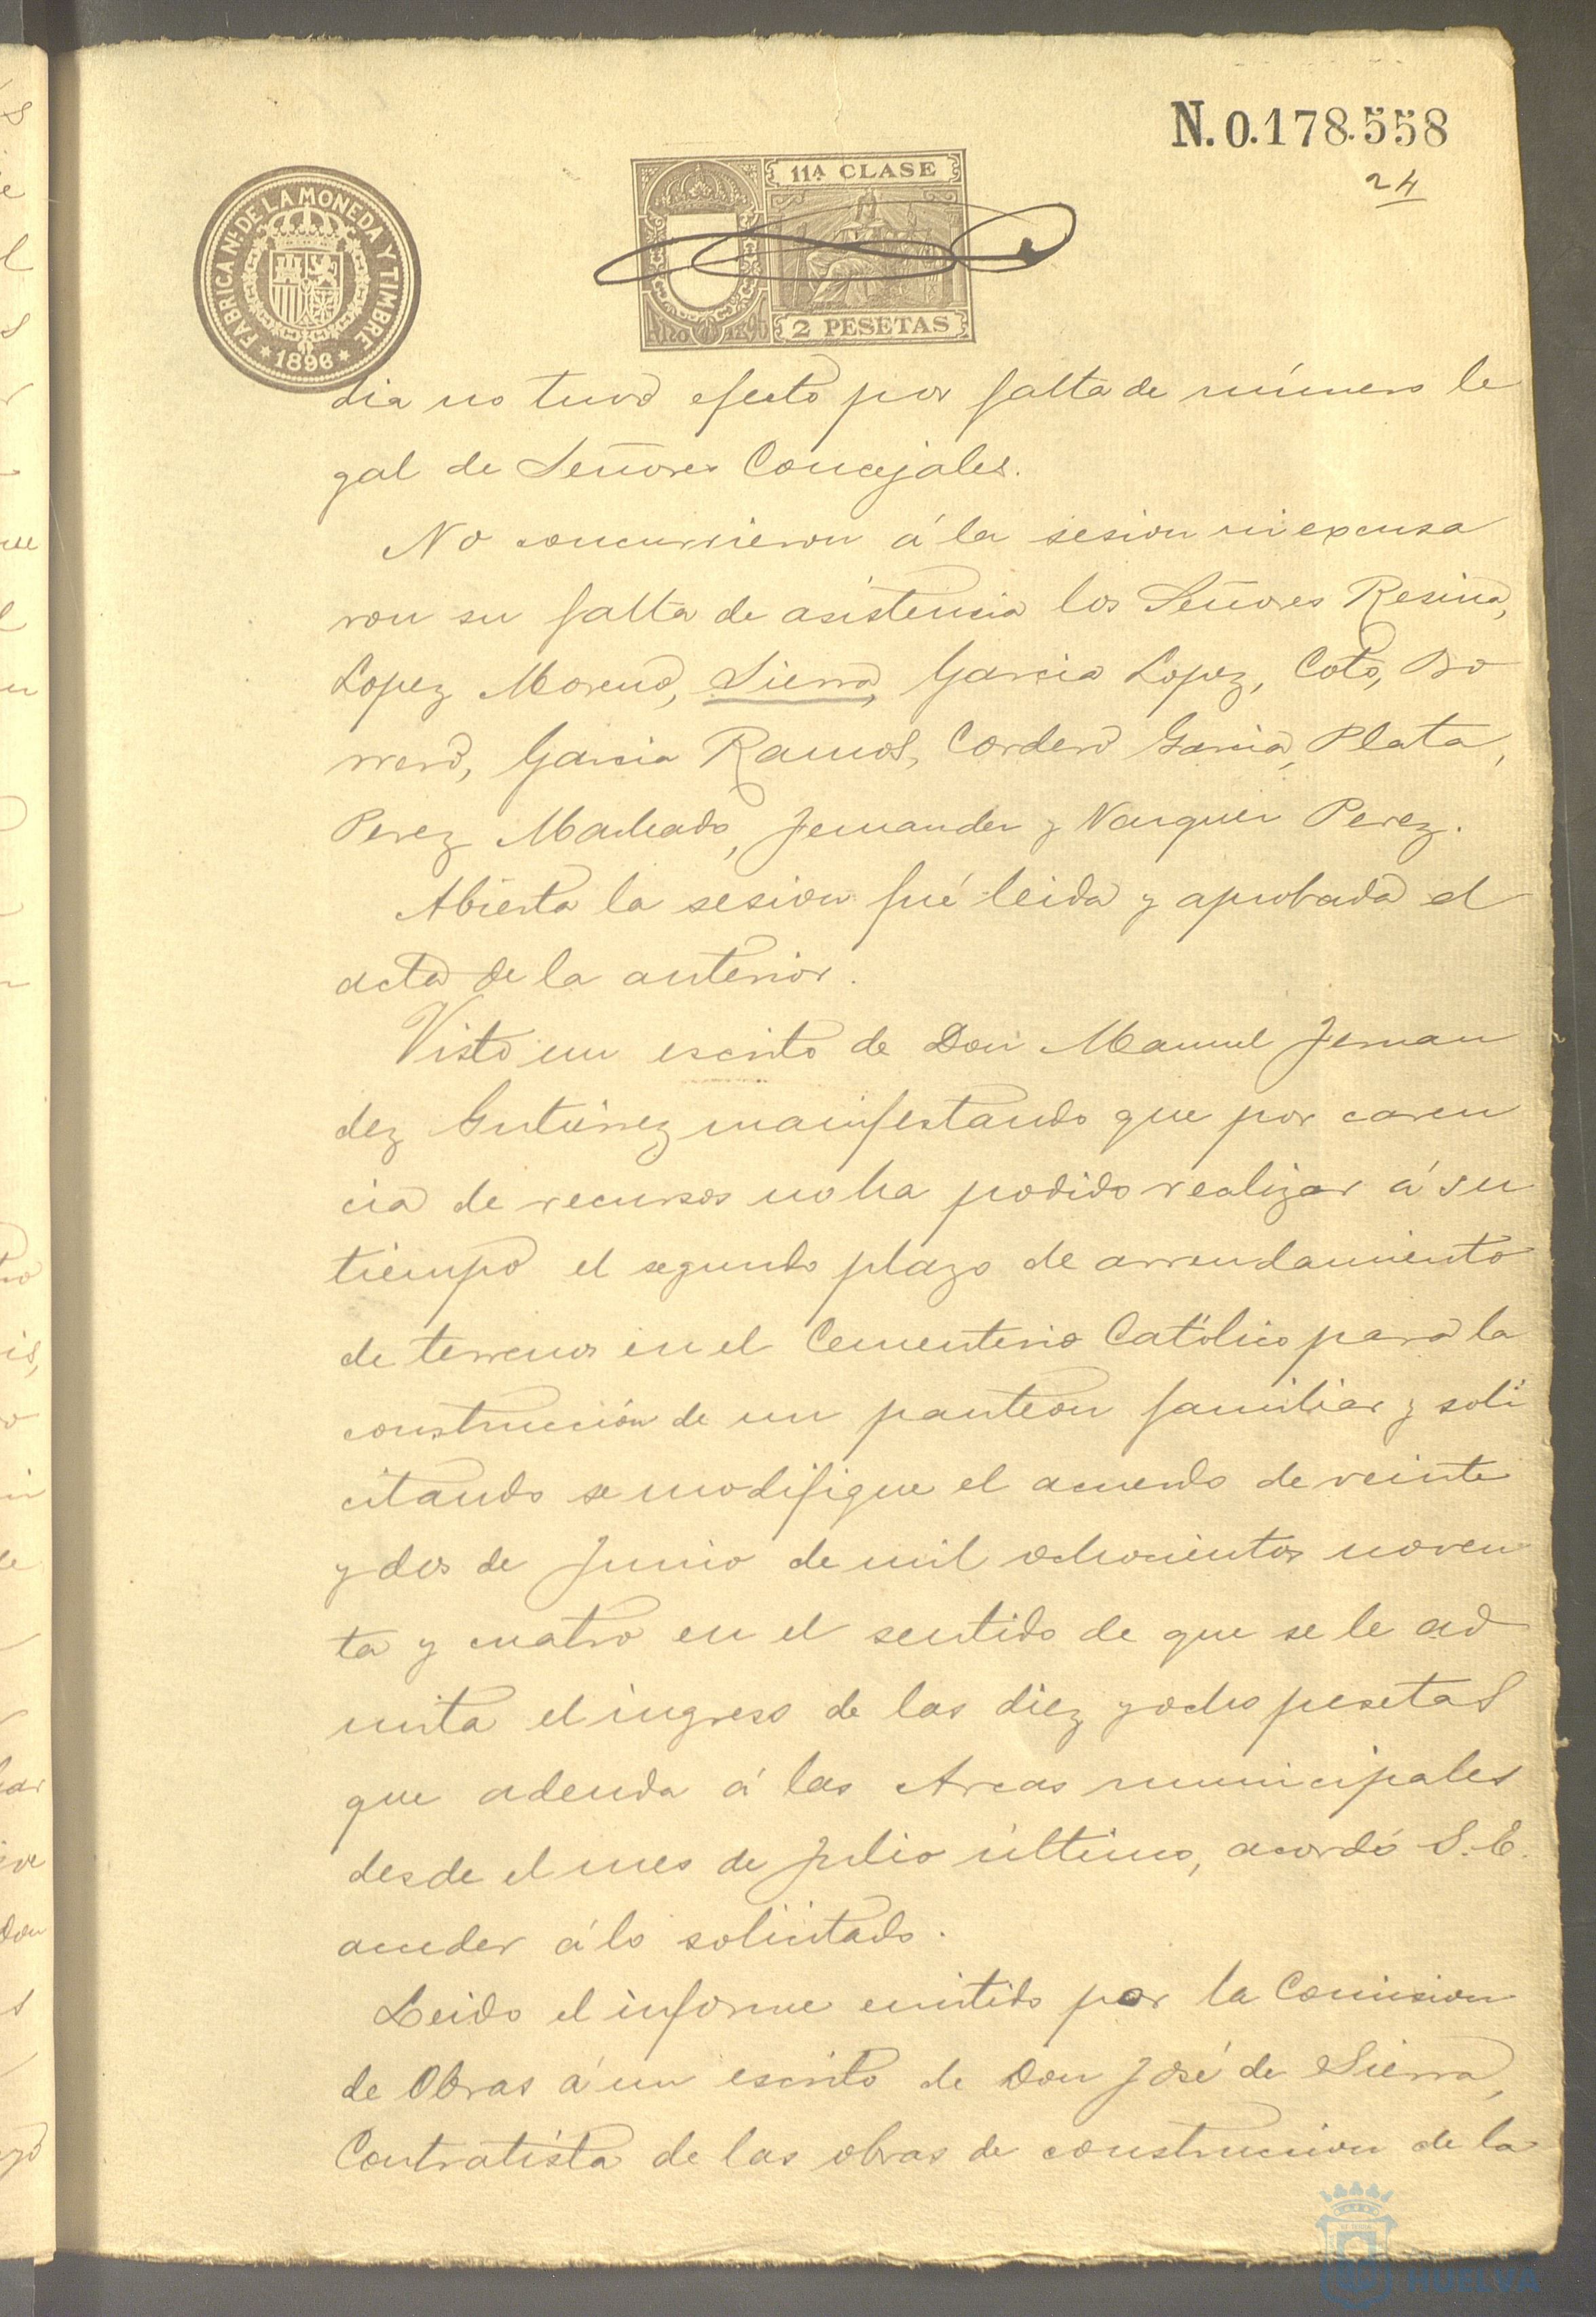 N. 0.178.558
24
FABRICA Nal DE LA MONEDA Y TIMBRE
* 1896 *
11ª CLASE
2 PESETAS
dia no tuvo efecto por falta de número le
gal de Señores Concejales.
No concurrieron á la sesion ni excusa
ron su falta de asistencia los Señores Resina,
Lopez Moreno, Sierra, Garcia Lopez, Coto, Bo
rrero, Garcia Ramos, Cordero Garcia, Plata,
Perez Machado, Fernandez y Vazquez Perez.
Abierta la sesion fué leida y aprobada el
acta de la anterior.
Visto un escrito de Don Manuel Fernan
dez Gutierrez manifestando que por caren
cia de recursos no ha podido realizar á su
tiempo el segundo plazo de arrendamiento
de terrenos en el Cementerio Católico para la
construcción de un panteon familiar y soli
citando se modifique el acuerdo de veinte
y dos de Junio de mil ochocientos noven
ta y cuatro en el sentido de que se le ad
mita el ingreso de las diez y ocho pesetas
que adeuda á las Arcas municipales
desde el mes de Julio último, acordó S. E.
acceder á lo solicitado.
Leido el informe emitido por la Comision
de Obras á un escrito de Don José de Sierra,
Contratista de las obras de construccion de la
HUELVA